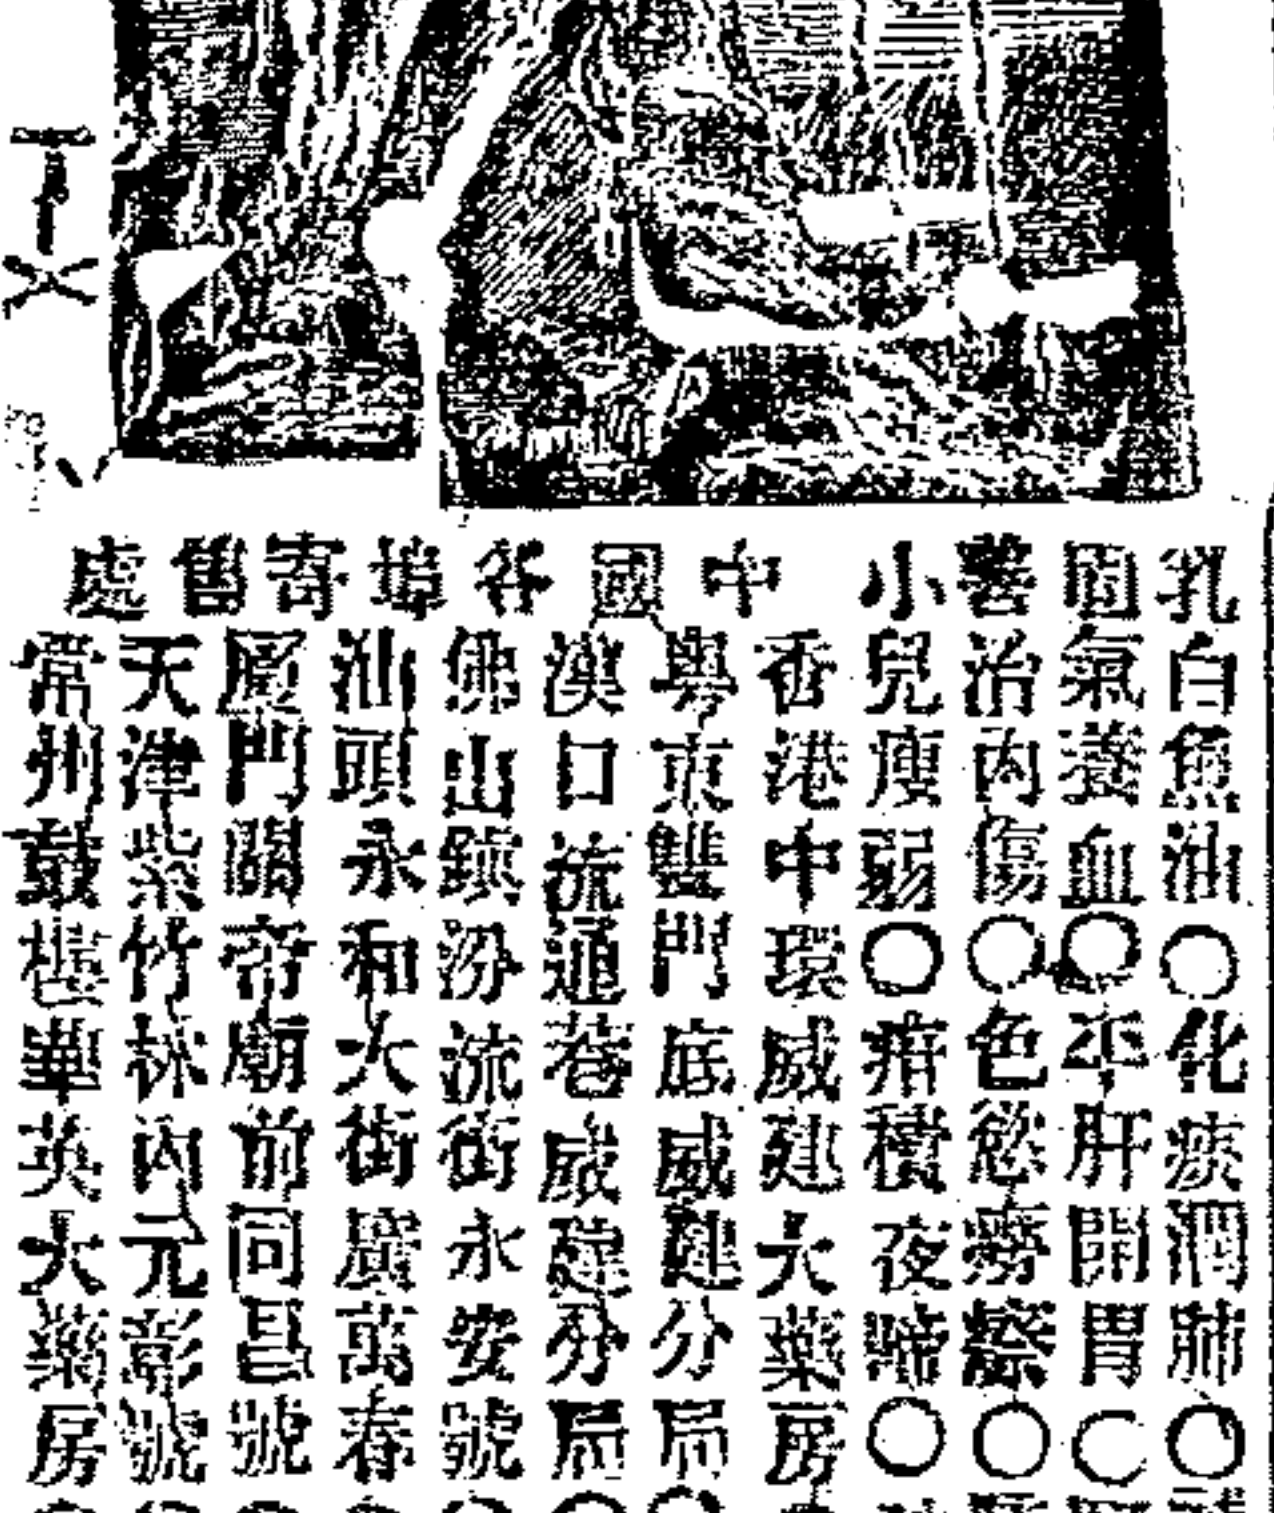 乳白魚油○化痰潤肺○
固氣養血○平肝開胃○
善治內傷○色慾癆瘵○
小兒瘦弱○疳積夜啼○
中國各埠寄售處
香港中環威建大藥房
粵東雙門底威建分局
漢口流通巷威建分局
佛山鎮汾流街永安號
汕頭永和大街廣萬春
廈門關帝廟前同昌號
天津紫竹林內元彰號
常州鼓樓華英大藥房